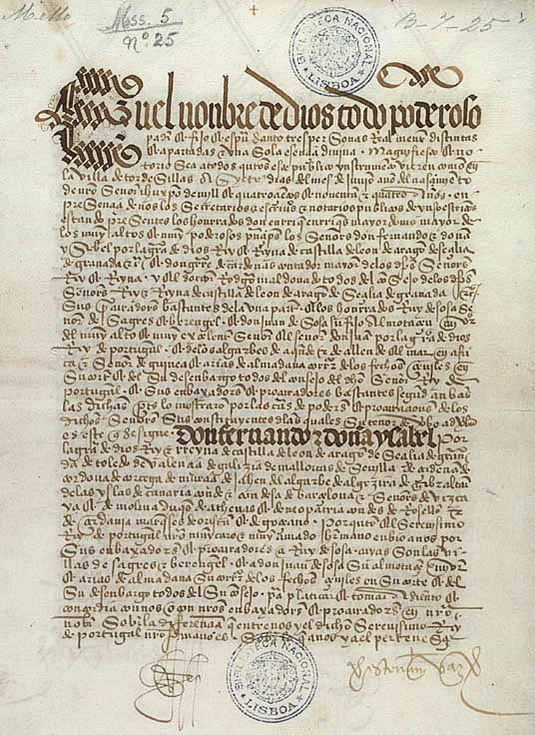 Mello
Mss. 5
nº. 25
B-7-25
BIBLIOTECA NACIONAL
LISBOA
En el nonbre de dios todo poderoso
padre & fijo & espu santo tres personas Realmente distintas
& apartadas & una Sola esençia diuina. Magnifiesto & no
torio Sea a todos quantos este publico ynstrumento vieren como en
la villa de tordesillas A Siete dias del mes de Junio año del nasçimiento
de nro Señor ihu xpo de mill & quatroçientos & nouenta & quatro años. en
presençia de nos los Secretarios & escriuanos & notarios publicos de yuso escritos
estando presentes los honrrados don enrrique enrriques mayordomo mayor de
los muy altos & muy poderosos prinçipes los Señores don fernando & doña
ysabel por la graçia de dios Rey & Reyna de castilla de leon de aragon de seçilia
de granada &c & don gutierre de cardenas contador mayor de los dichos Señores
Rey & Reyna. y el doctor Rodrigo maldonado todos del consejo de los dichos
Señores Rey & Reyna de castilla de leon de aragon de Seçilia de granada &c
Sus procuradores bastantes de la una parte. & los honrrados Ruy de sosa Se
ñor de Sagres & berengel. & don juan de Sosa Su fijo Almotaçen mayor
del muy alto & muy exçelente Señor el Señor don juan por la graçia de dios
Rey de portugal. & de los algarbes de aquende & de allende el mar en afri
ca & Señor de guinea & arias de almadana corregidor de los fechos çeuiles en
Su corte & del Su desenbargo todos del consejo del dicho Señor Rey de
portugal. & Sus enbaxadores & procuradores bastantes segund anbas
las dichas partes lo mostraron por las cartas de poderes & procuraçiones de los
dichos Señores Sus constituyentes de las quales Su tenor de verbo ad verbum
es este que se sigue. Don fernando & doña ysabel por
la graçia de dios Rey & Reyna de castilla de leon de aragon de Seçilia de grana
da de toledo de valençia de galizia de mallorcas de Seuilla de çerdeña de
cordoua de corçega de murçia de jahen del algarbe de algezira de gibraltar
de las yslas de canaria conde & condesa de barçelona & Señores de vizca
ya & de molina duques de athenas & de neopatria condes de Rosellon
& de çerdania marqueses de oristan & de goçiano. Por quanto el Serenisimo
Rey de portugal nro muy caro & muy amado hermano enbio a nos por
Sus enbaxadores & procuradores a Ruy de sosa cuyas Son las vi
llas de sagres & berengel. & a don juan de sosa Su almotaçen mayor
& arias de almadana Su corregidor de los fechos çeuiles en Su corte & del
Su desenbargo todos del Su consejo. para platicar & tomar asiento &
concordia con nos o con nros enbaxadores & procuradores en nro
nonbre Sobre la diferençia que entre nos y el dicho Serenisimo Rey
de portugal nro hermano es Sobre lo que a nos y a el perteneçe
BIBLIOTECA NACIONAL
LISBOA